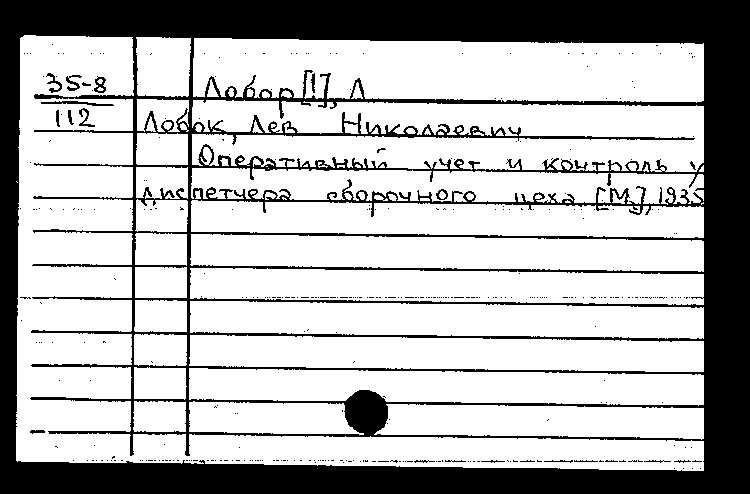 35-8
112
Лобор[!], Л
Лобок, Лев Николаевич
Оперативный учет и контроль у
диспетчера сборочного цеха [М.], 1935